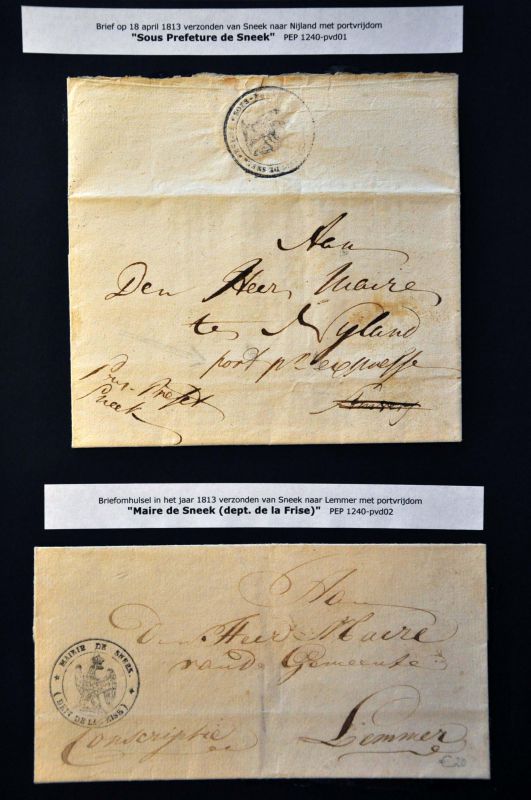 Brief op 18 april 1813 verzonden van Sneek naar Nijland met portvrijdom
"Sous Prefeture de Sneek" PEP 1240-pvd01
Aan
Den Heer Maire
te Nyland
port pr expresse
Sous-Prefet
Sneek
Briefomhulsel in het jaar 1813 verzonden van Sneek naar Lemmer met portvrijdom
"Maire de Sneek (dept. de la Frise)" PEP 1240-pvd02
Aan
Den Heer Maire
van de Gemeente
Lemmer
Conscriptie
MAIRIE DE SNEEK
€20